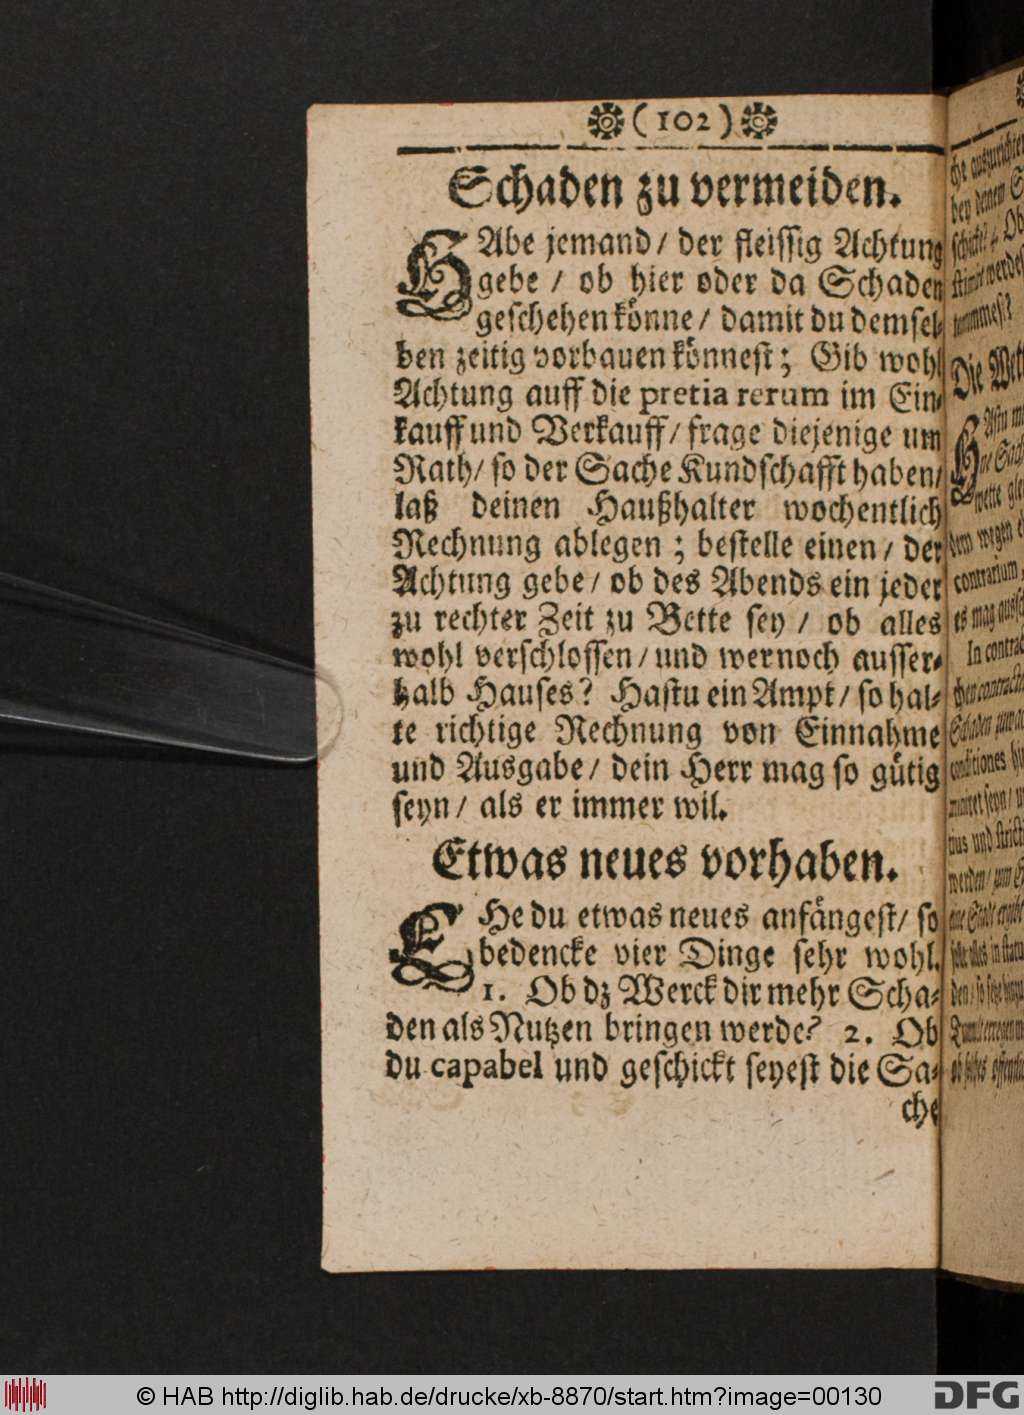 (102)
Schaden zu vermeiden.
HAbe jemand/ der fleissig Achtung
gebe / ob hier oder da Schaden
geschehen könne/ damit du demsel-
ben zeitig vorbauen könnest; Gib wohl
Achtung auff die pretia rerum im Ein-
kauff und Verkauff/ frage diejenige um
Rath/ so der Sache Kundschafft haben/
laß deinen Haußhalter wochentlich
Rechnung ablegen; bestelle einen/ der
Achtung gebe/ ob des Abends ein jeder
zu rechter Zeit zu Bette sey / ob alles
wohl verschlossen/ und wer noch ausser-
halb Hauses? Hastu ein Ampt/ so hal-
te richtige Rechnung von Einnahme
und Ausgabe/ dein Herr mag so gütig
seyn/ als er immer wil.
Etwas neues vorhaben.
EHe du etwas neues anfängest/ so
bedencke vier Dinge sehr wohl.
1. Ob dz Werck dir mehr Scha-
den als Nutzen bringen werde? 2. Ob
du capabel und geschickt seyest die Sa-
che
© HAB http://diglib.hab.de/drucke/xb-8870/start.htm?image=00130
DFG